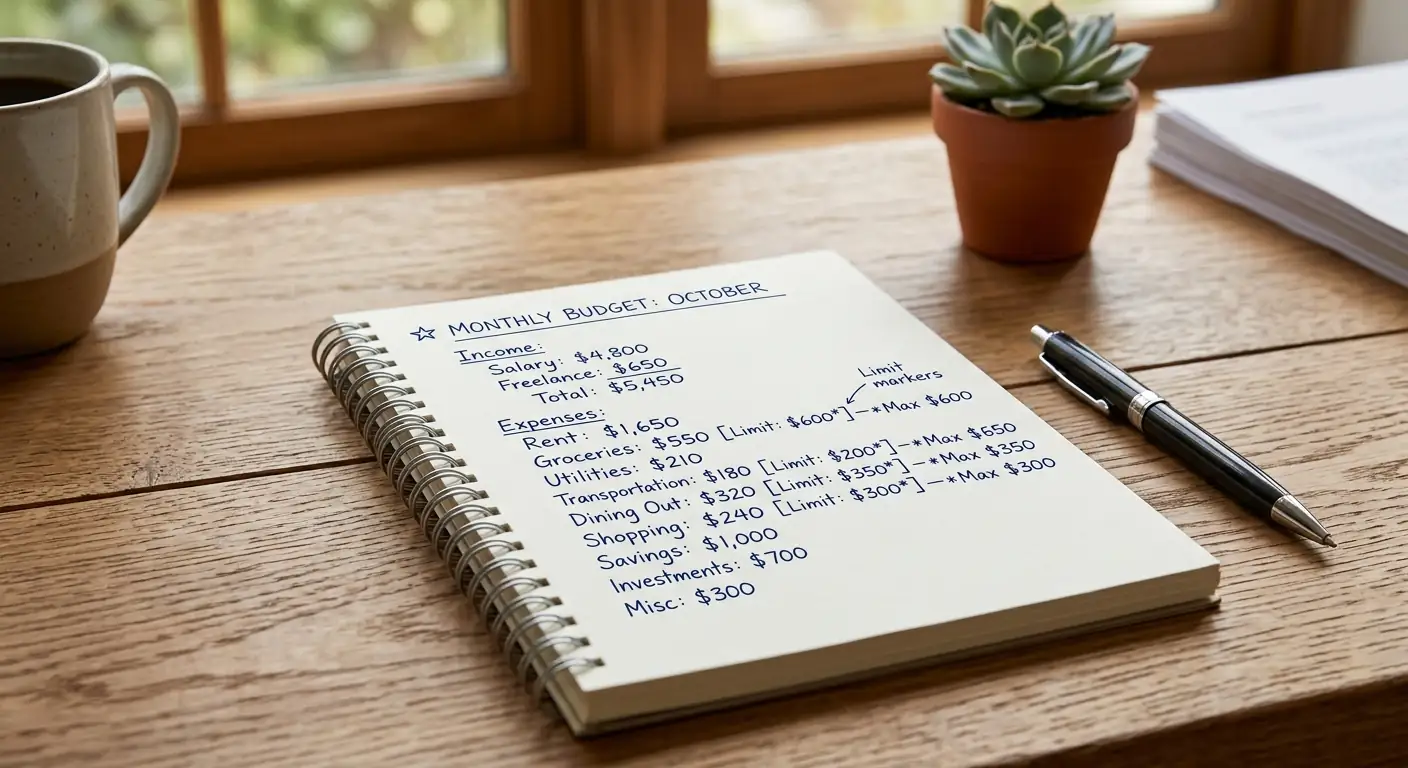 ☆ MONTHLY BUDGET: OCTOBER
Income:
Salary: $4,800
Freelance: $650
Total: $5,450
Limit
markers
Expenses:
Rent: $1,650
Groceries: $550 [Limit: $600*]—*Max $600
Utilities: $210
Transportation: $180 [Limit: $200*]—*Max $650
Dining Out: $320 [Limit: $350*]—*Max $350
Shopping: $240 [Limit: $300*]—*Max $300
Savings: $1,000
Investments: $700
Misc: $300